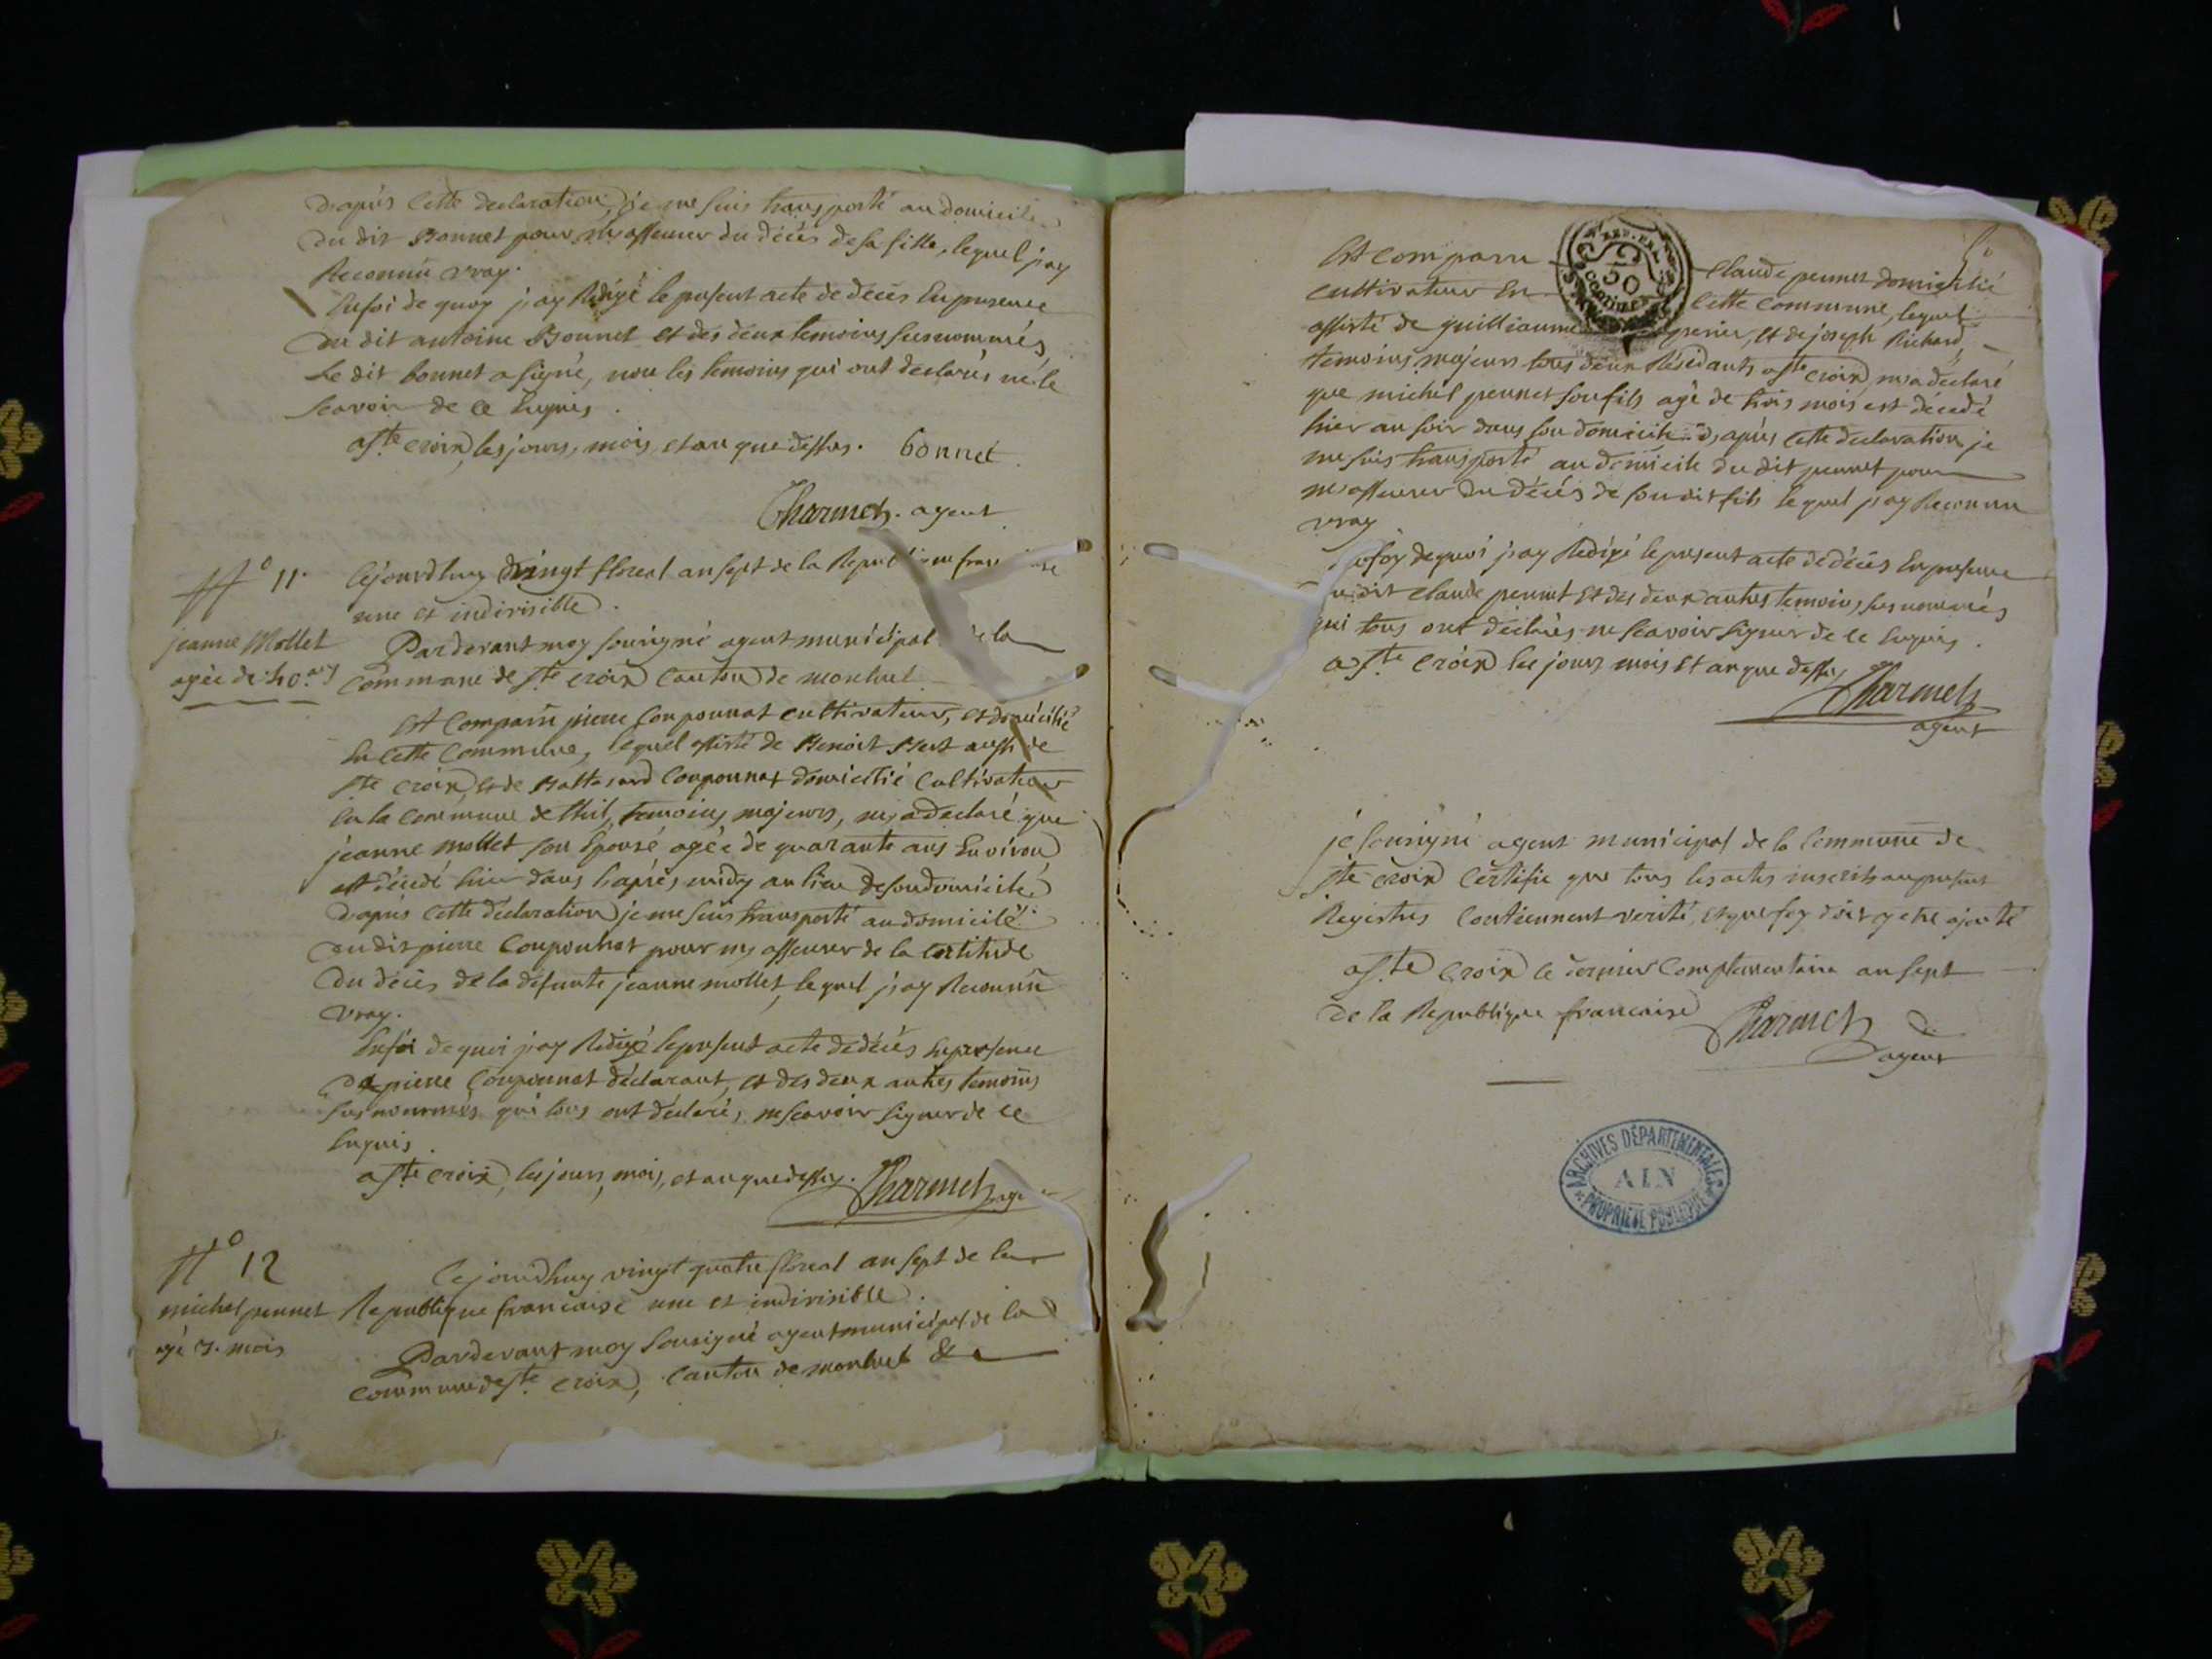 D'aprés Cette declaration, je me suis transporté au domicile
Du dit Bonnet pour m'assurer du décés de sa fille, lequel j'ay
Reconnü vray.
En foi de quoy j'ay Redigé le présent acte de décès En presence
Du dit antoine Bonnet et des deux temoins susnommés
Le dit bonnet a signé, non les temoins qui ont declarés ne le
scavoir de ce Enquis.
a Ste croix, les jours, mois, et an que dessus. bonnet
Charmet. agent
N° 11.
jeanne Mollet
agée de 40 ans
Cejourdhuy vingt floreal an sept de la Republique française
une et indivisible.
Pardevant moy sousigné agent municipal de la
Commune de Ste croix Canton de montluel
Est Comparû pierre Couponnat cultivateur, et domicilié
En cette Commune, lequel assisté de Benoit Bert aussi de
Ste croix, et de Baltasard Couponnat domicilié Cultivateur
En la Commune de thil, temoins majeurs, m'a declaré que
jeanne mollet son Epouse agée de quarante ans Environ
est décédé hier dans l'aprés midy au lieu de son domicile
D'apres Cette déclaration je me suis transporté au domicile
Du dit pierre Couponnat pour m'assurer de la certitude
Du décés de la défunte jeanne mollet, lequel j'ay Reconnü
vray.
En foi de quoi j'ay Redigé le present acte de décés En presence
De pierre Couponnat déclarant, et des deux autres temoins
susnommés qui tous ont déclarés, ne scavoir signer de ce
Enquis.
a Ste croix, les jours, mois, et an que dessus. Charmet agent
N° 12
michel pennet
agé 3. mois
Cejourdhuy vingt quatre floreal an sept de la
Republique francaise une et indivisible.
Pardevant moy Sousigné agent municipal de la
Commune de Ste croix, Canton de montluel &
Est Comparu Claude pennet domicilié
cultivateur En Cette Commune, lequel
REP. FRA.
50
centimes
assisté de guilliaume perier, et de joseph Richard,
temoins majeurs tous deux Résidants a Ste croix, m'a declaré
que michel pennet son fils agé de trois mois est décedé
hier au soir dans son domicile. D'aprés Cette declaration je
me suis transporté au domicile du dit pennet pour
m'assurer Du décés de son dit fils lequel j'ay Reconnu
vray
En foy de quoi j'ay Redigé le present acte de décés En presence
du dit Claude pennet Et des deux autres temoins susnommés
qui tous ont déclarés ne scavoir signer de ce Enquis.
a Ste Croix les jours mois Et an que dessus
Charmet
agent
je sousigné agent municipal de la Commune de
Ste croix Certifie que tous les actes inscrits au présent
Registres Contiennent verité, et que foy doit y etre ajouté
a Ste Croix ce dernier Complementaire an sept
de la Republique francaise Charmet
agent
ARCHIVES DÉPARTEMENTALES
AIN
PROPRIÉTÉ PUBLIQUE